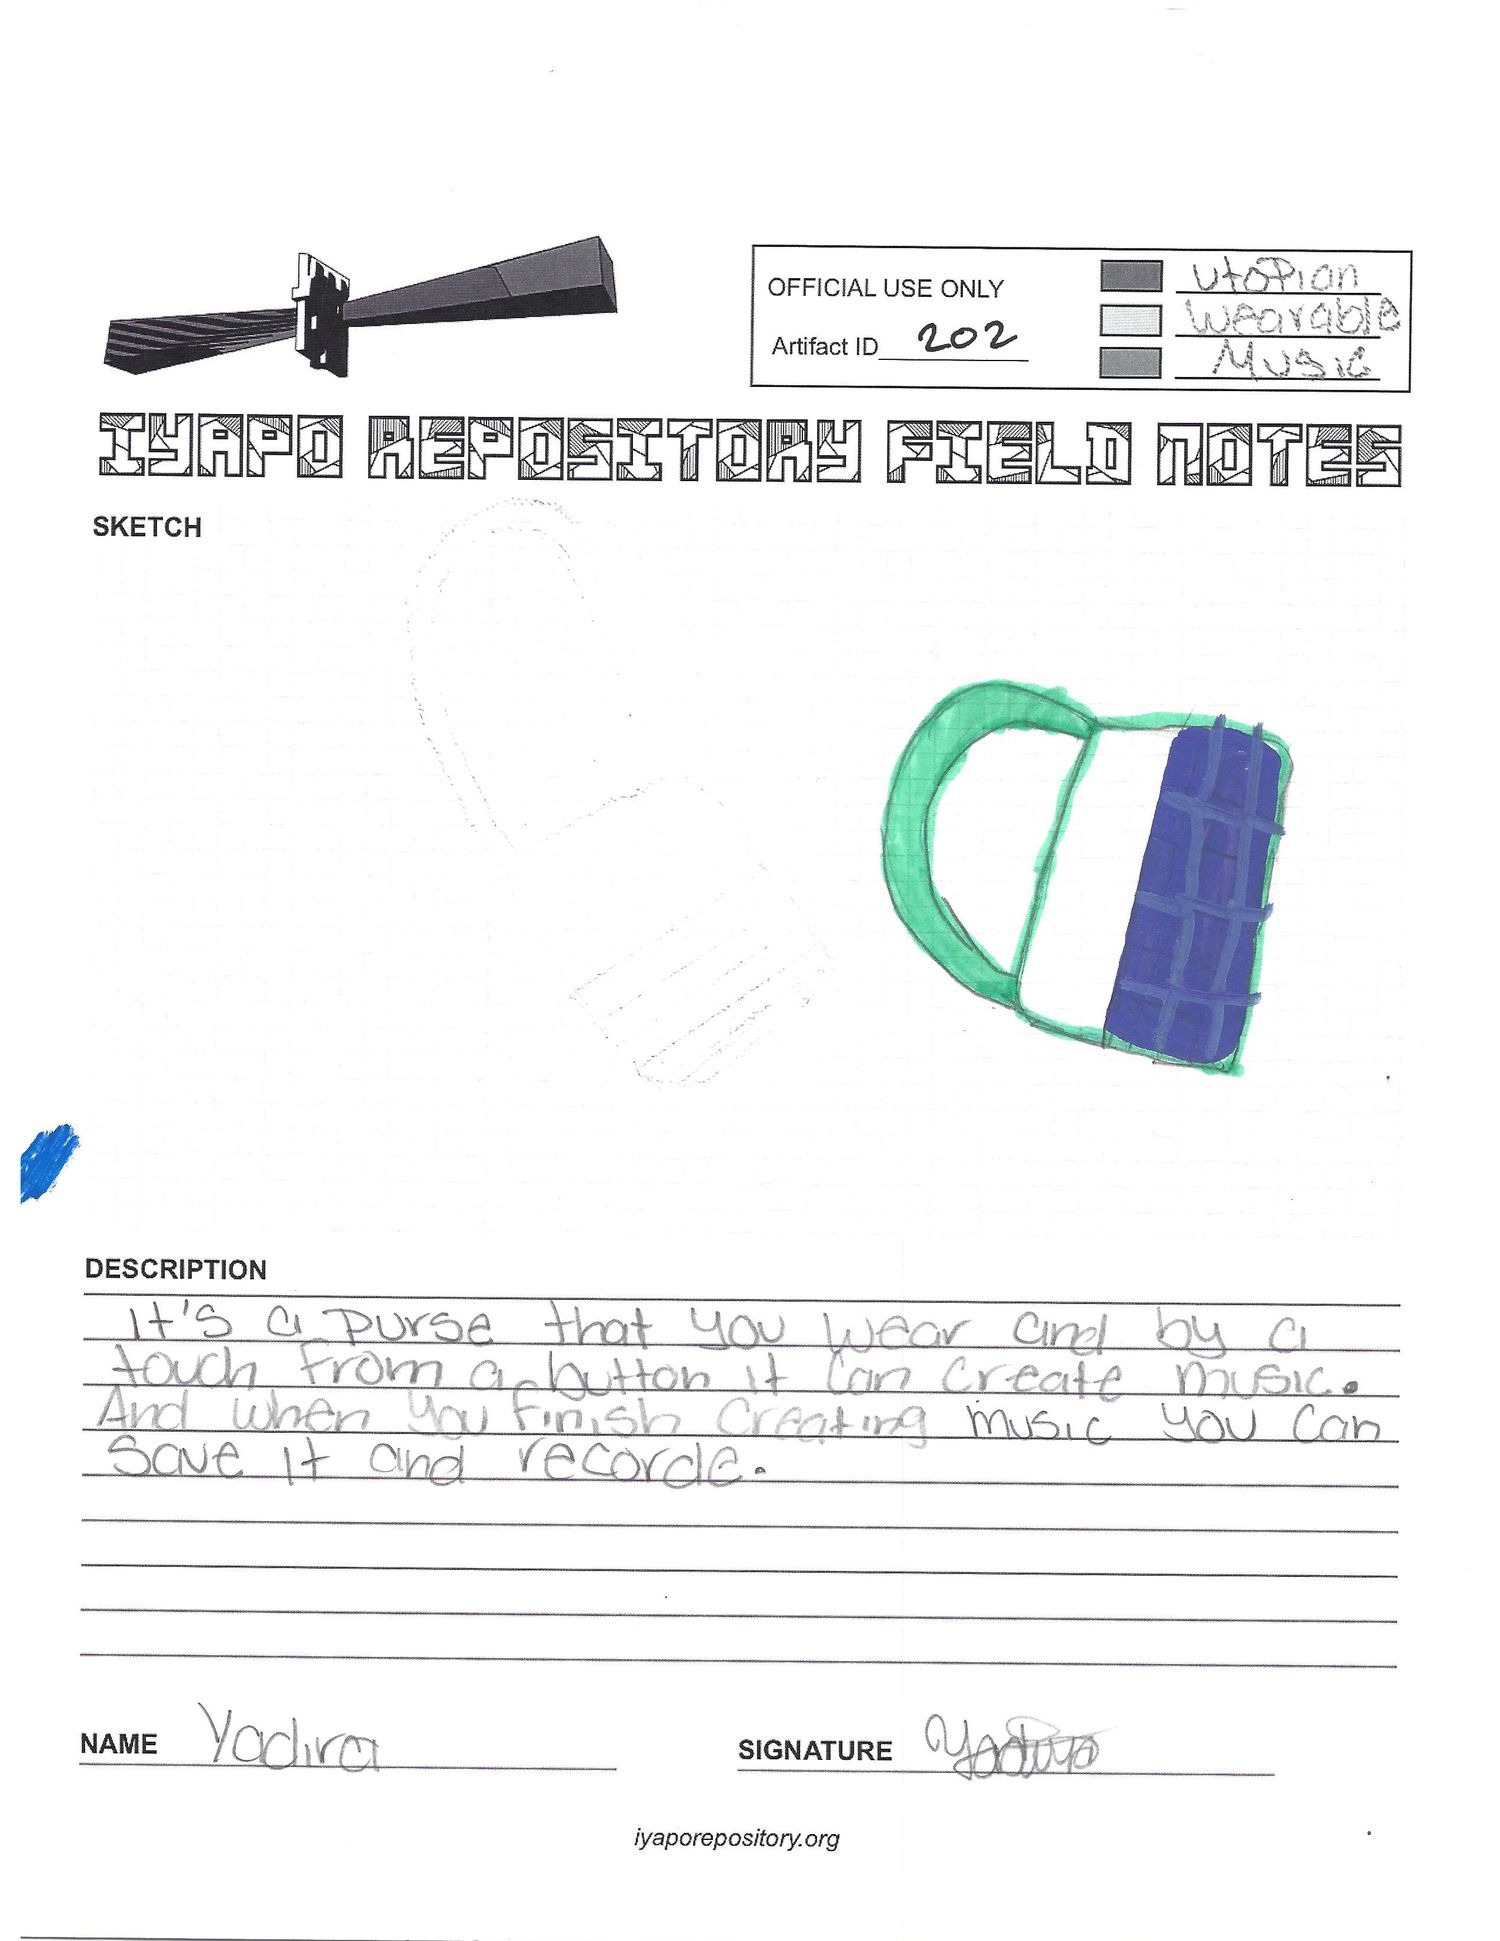 OFFICIAL USE ONLY
Artifact ID 202
Utopian
Wearable
Music
IYAPO REPOSITORY FIELD NOTES
SKETCH
DESCRIPTION
It's a purse that you wear and by a
touch from a button it can create music.
And when you finish creating music you can
save it and recorde.
NAME Yadira
SIGNATURE Yadira
iyaporepository.org